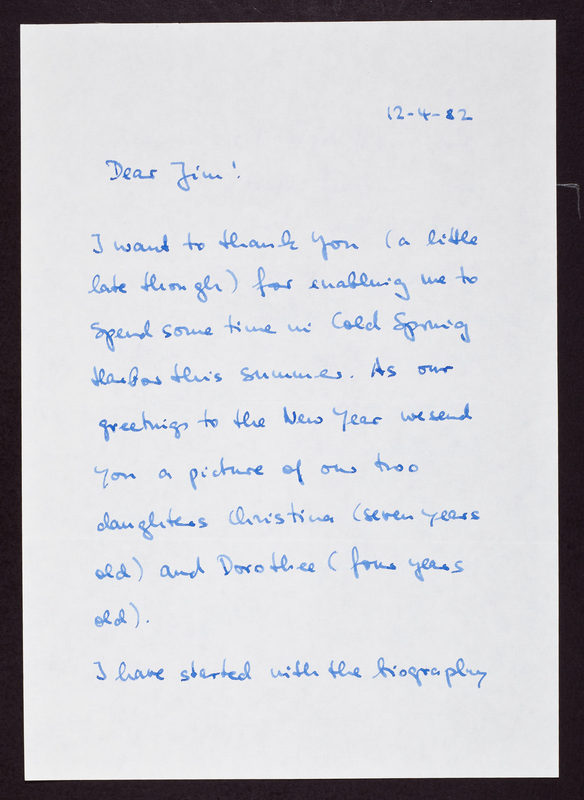 12-4-82
Dear Jim!
I want to thank you (a little
late though) for enabling me to
spend some time in Cold Spring
Harbor this summer. As our
greetings to the New Year we send
you a picture of our two
daughters Christina (seven years
old) and Dorothee (four years
old).
I have started with the biography